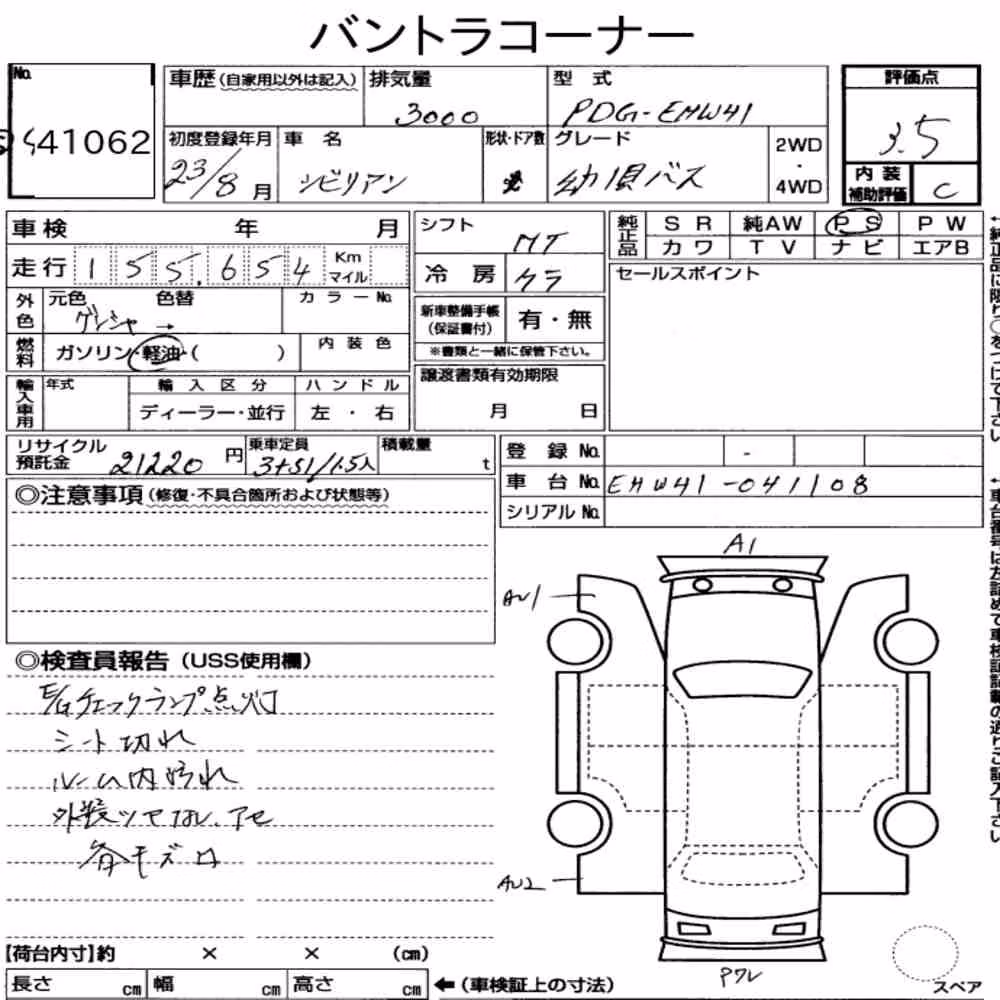 バントラコーナー
No. 41062
車歴(自家用以外は記入) 排気量 3000 型式 PDG-EHW41 評価点 3.5
初度登録年月 23/8月 車名 シビリアン 形状・ドア数 グレード 幼児バス 2WD・4WD 内装補助評価 C
車検 年 月
走行 155,654 Km マイル
外色 元色 色替 カラーNo.
燃料 ガソリン・軽油・( ) 内装色
輸入車用 年式 輸入区分 ハンドル
ディーラー・並行 左・右
シフト MT
冷房 クラ
新車整備手帳(保証書付) 有・無
※書類と一緒に保管下さい。
譲渡書類有効期限
月 日
純正品 SR 純AW PS PW
カワ TV ナビ エアB
セールスポイント
←純正品に限り○をつけて下さい
リサイクル預託金 21220円 乗車定員 3+51/1.5人 積載量 t
登録No. -
車台No. EHW41-041108
シリアルNo.
←車台番号は左詰めで車検証記載の通りご記入下さい
◎注意事項(修復・不具合箇所および状態等)
◎検査員報告(USS使用欄)
E/Gチェックランプ点灯
シート切れ
ルーム内汚れ
外装ツヤなし、アセ
各キズロ
A1
AU1
AU2
【荷台内寸】約 × × (cm)
長さ cm 幅 cm 高さ cm ←(車検証上の寸法)
スペア